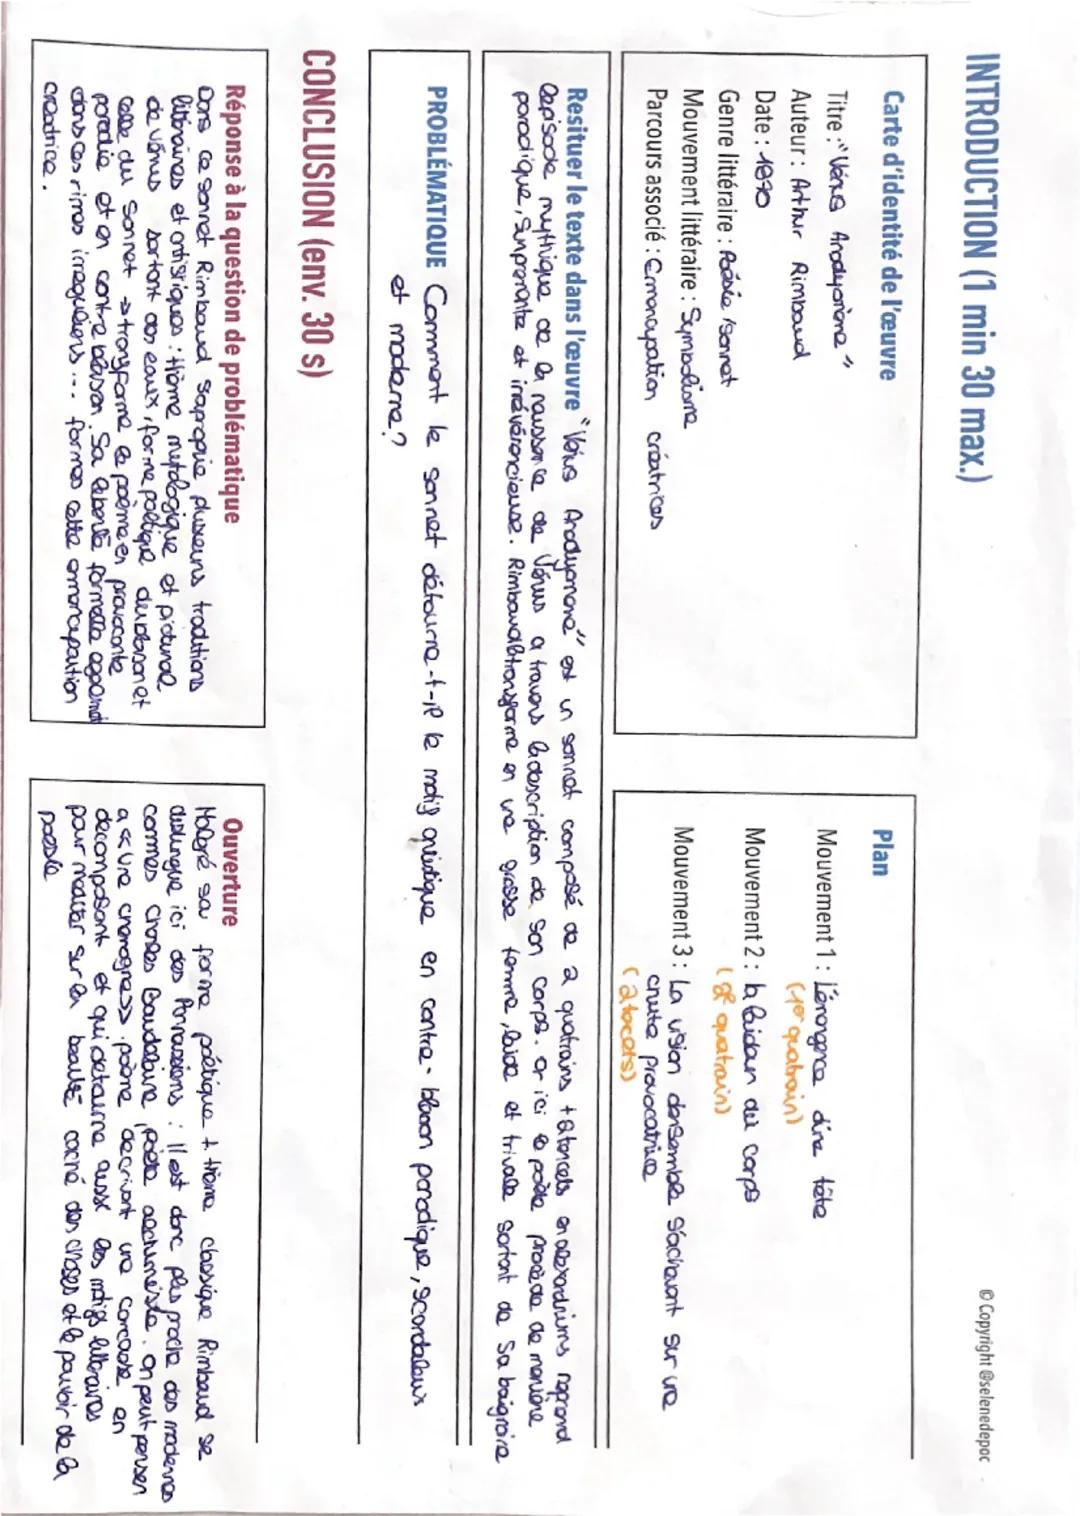 INTRODUCTION (1 min 30 max.)
© Copyright @selenedepoc
Carte d'identité de l'œuvre
Titre : "Vénus Anadyomène"
Auteur : Arthur Rimbaud
Date : 1870
Genre littéraire : Poésie / sonnet
Mouvement littéraire : Symbolisme
Parcours associé : Emancipation créatrices
Plan
Mouvement 1 : L'émergence d'une tête
(1er quatrain)
Mouvement 2 : la laideur du corps
(2e quatrain)
Mouvement 3 : La vision d'ensemble s'achevant sur une
chute provocatrice
(2 tercets)
Resituer le texte dans l'œuvre "Vénus Anadyomène" est un sonnet composé de 2 quatrains + 2 tercets en alexandrins reprend
l'épisode mythique de la naissance de Vénus a travers la description de son corps. or ici le poète procède de manière
parodique, surprenante et irrévérencieuse. Rimbaud la transforme en une grosse femme, laide et triviale sortant de sa baignoire
PROBLÉMATIQUE Comment le sonnet détourne-t-il le motif antique en contre-blason parodique, scandaleux
et moderne?
CONCLUSION (env. 30 s)
Réponse à la question de problématique
Dans ce sonnet Rimbaud s'aproprie plusieurs traditions
littéraires et artistiques : thème mytologique et pictural
de vénus sortant des eaux, forme poétique du blason et
celle du sonnet → transforme le poème en provocante
parodie et en contre blason. Sa liberté formelle
dans ces rimes irreguliers ... formes cette emancipation
créatrice.
Ouverture
Malgré sa forme poétique + thème classique Rimbaud se
distingue ici des Parnassiens : Il est donc plus proche des modernes
commes Charles Baudelaire, poète . on peut penser
a « Une charogne », poème decrivant une carcasse en
decomposant et qui detourne aussi les motifs litteraires
pour mettre sur la beauté caché des choses et le pouvoir de la
poésie